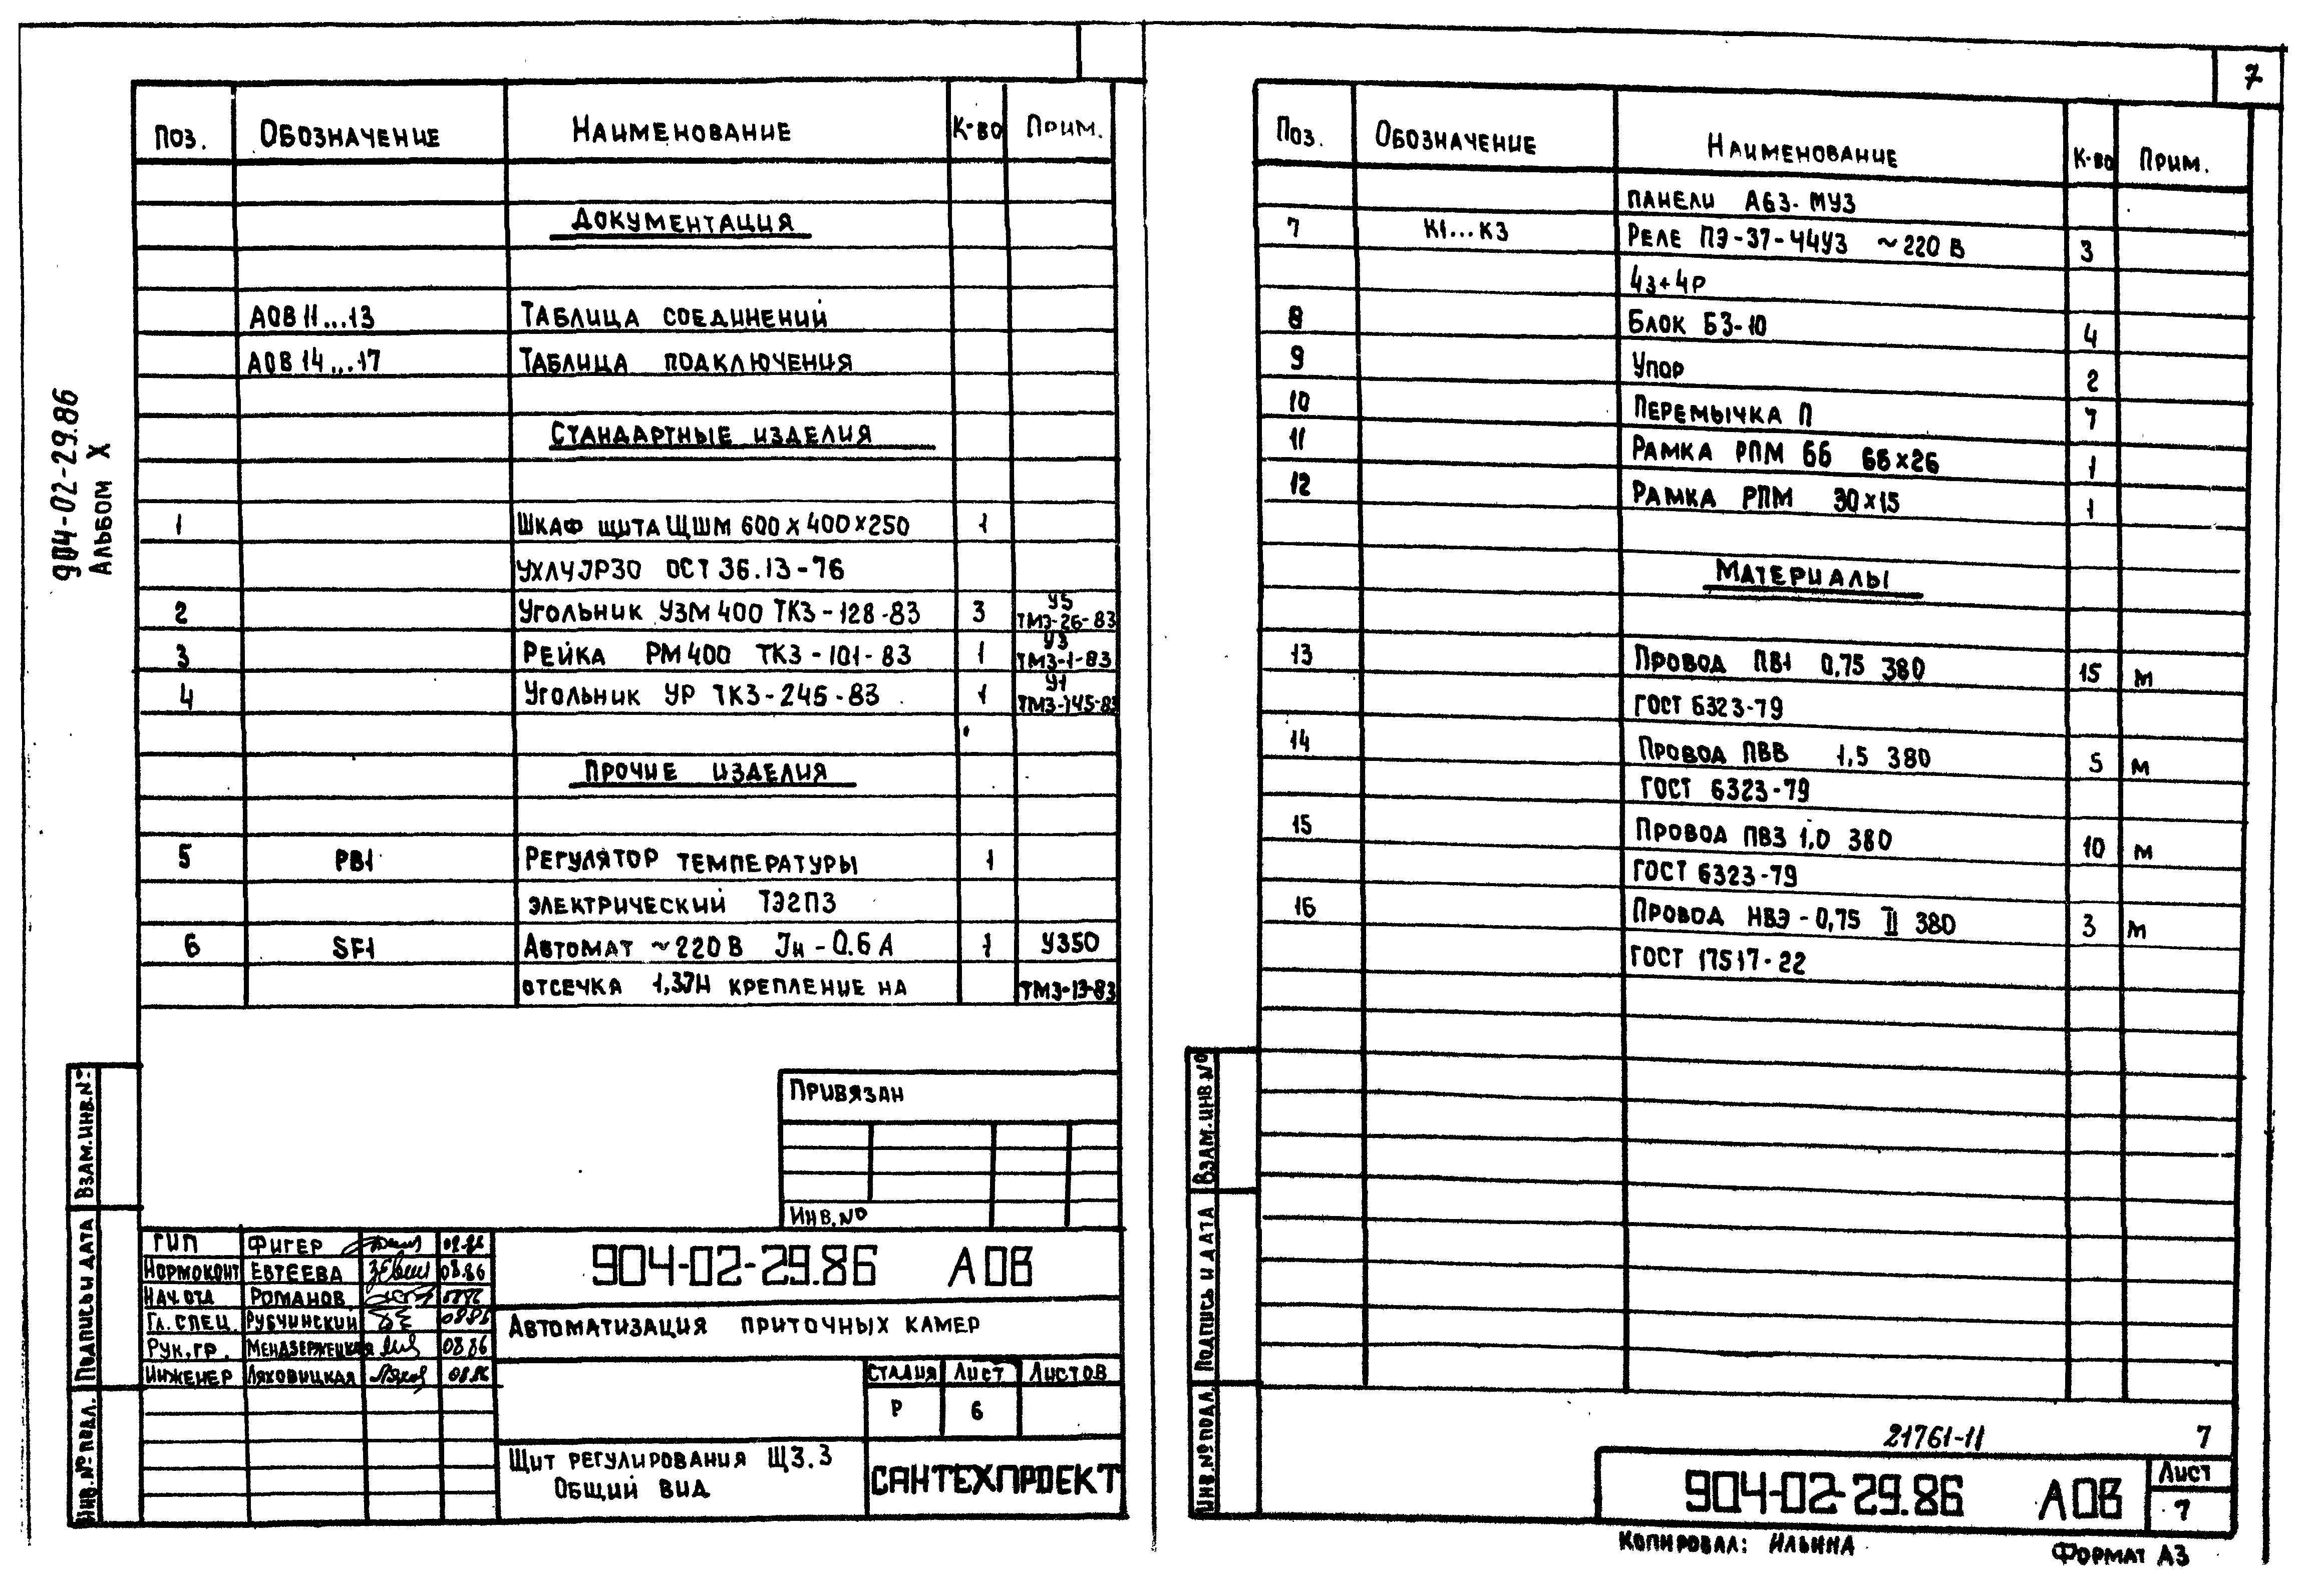 904-02-29.86
Альбом X
Поз. Обозначение Наименование К-во Прим.
Документация
АОВ 11...13 Таблица соединений
АОВ 14...17 Таблица подключения
Стандартные изделия
1 Шкаф щита ЩШМ 600х400х250 1
УХЛ4 JP30 ОСТ 36.13-76
2 Угольник УЗМ 400 ТК3-128-83 3 У5 ТМ3-26-83
3 Рейка РМ400 ТК3-101-83 1 У3 ТМ3-1-83
4 Угольник УР ТК3-245-83 1 У1 ТМ3-145-83
Прочие изделия
5 РВ1 Регулятор температуры 1
электрический ТЭ2П3
6 SF1 Автомат ~220В Jн-0.6А 1 У350
отсечка 1,3JН крепление на ТМ3-13-83
Привязан
Инв.№
ГИП Фигер 08.86
Нормоконт Евтеева 08.86
Нач.отд Романов 08.86
Гл.спец. Рубчинский 08.86
Рук.гр. Мендзержецкая 08.86
Инженер Ляховицкая 08.86
904-02-29.86 АОВ
Автоматизация приточных камер
Стадия Лист Листов
Р 6
Щит регулирования Щ3.3
Общий вид
САНТЕХПРОЕКТ
Взам.инв.№
Подпись и дата
Инв.№ подл.
7
Поз. Обозначение Наименование К-во Прим.
панели А63-МУ3
7 К1...К3 Реле ПЭ-37-44У3 ~220 В 3
4з+4р
8 Блок БЗ-10 4
9 Упор 2
10 Перемычка П 7
11 Рамка РПМ 66 66х26 1
12 Рамка РПМ 30х15 1
Материалы
13 Провод ПВ1 0,75 380 15 м
ГОСТ 6323-79
14 Провод ПВВ 1,5 380 5 м
ГОСТ 6323-79
15 Провод ПВ3 1,0 380 10 м
ГОСТ 6323-79
16 Провод НВЭ-0,75 II 380 3 м
ГОСТ 17517-22
Взам.инв №
Подпись и дата
Инв.№ подл.
21761-11 7
904-02-29.86 АОВ
Лист
7
Копировал: Ильина Формат А3